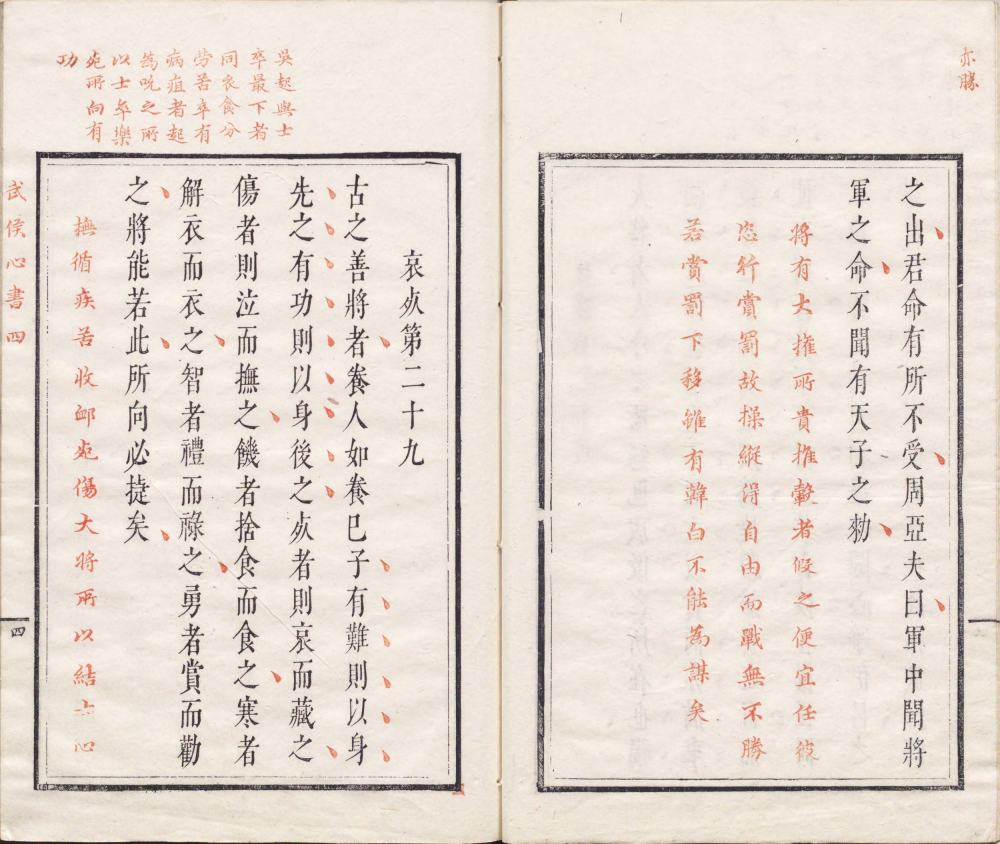 亦勝
之出君命有所不受周亞夫曰軍中聞將
軍之命不聞有天子之勑
將有大權所貴推轂者假之便宜任彼
恣行賞罰故操縱得自由而戰無不勝
若賞罰下移雖有韓白不能為謀矣
吳起與士
卒最下者
同衣食分
勞苦卒有
病疽者起
為吮之所
以士卒樂
死所向有
功
哀死第二十九
古之善將者養人如養已子有難則以身
先之有功則以身後之死者則哀而藏之
傷者則泣而撫之饑者捨食而食之寒者
解衣而衣之智者禮而祿之勇者賞而勸
之將能若此所向必㨗矣
撫循疾苦收卹死傷大將所以結士心
武侯心書 四
四